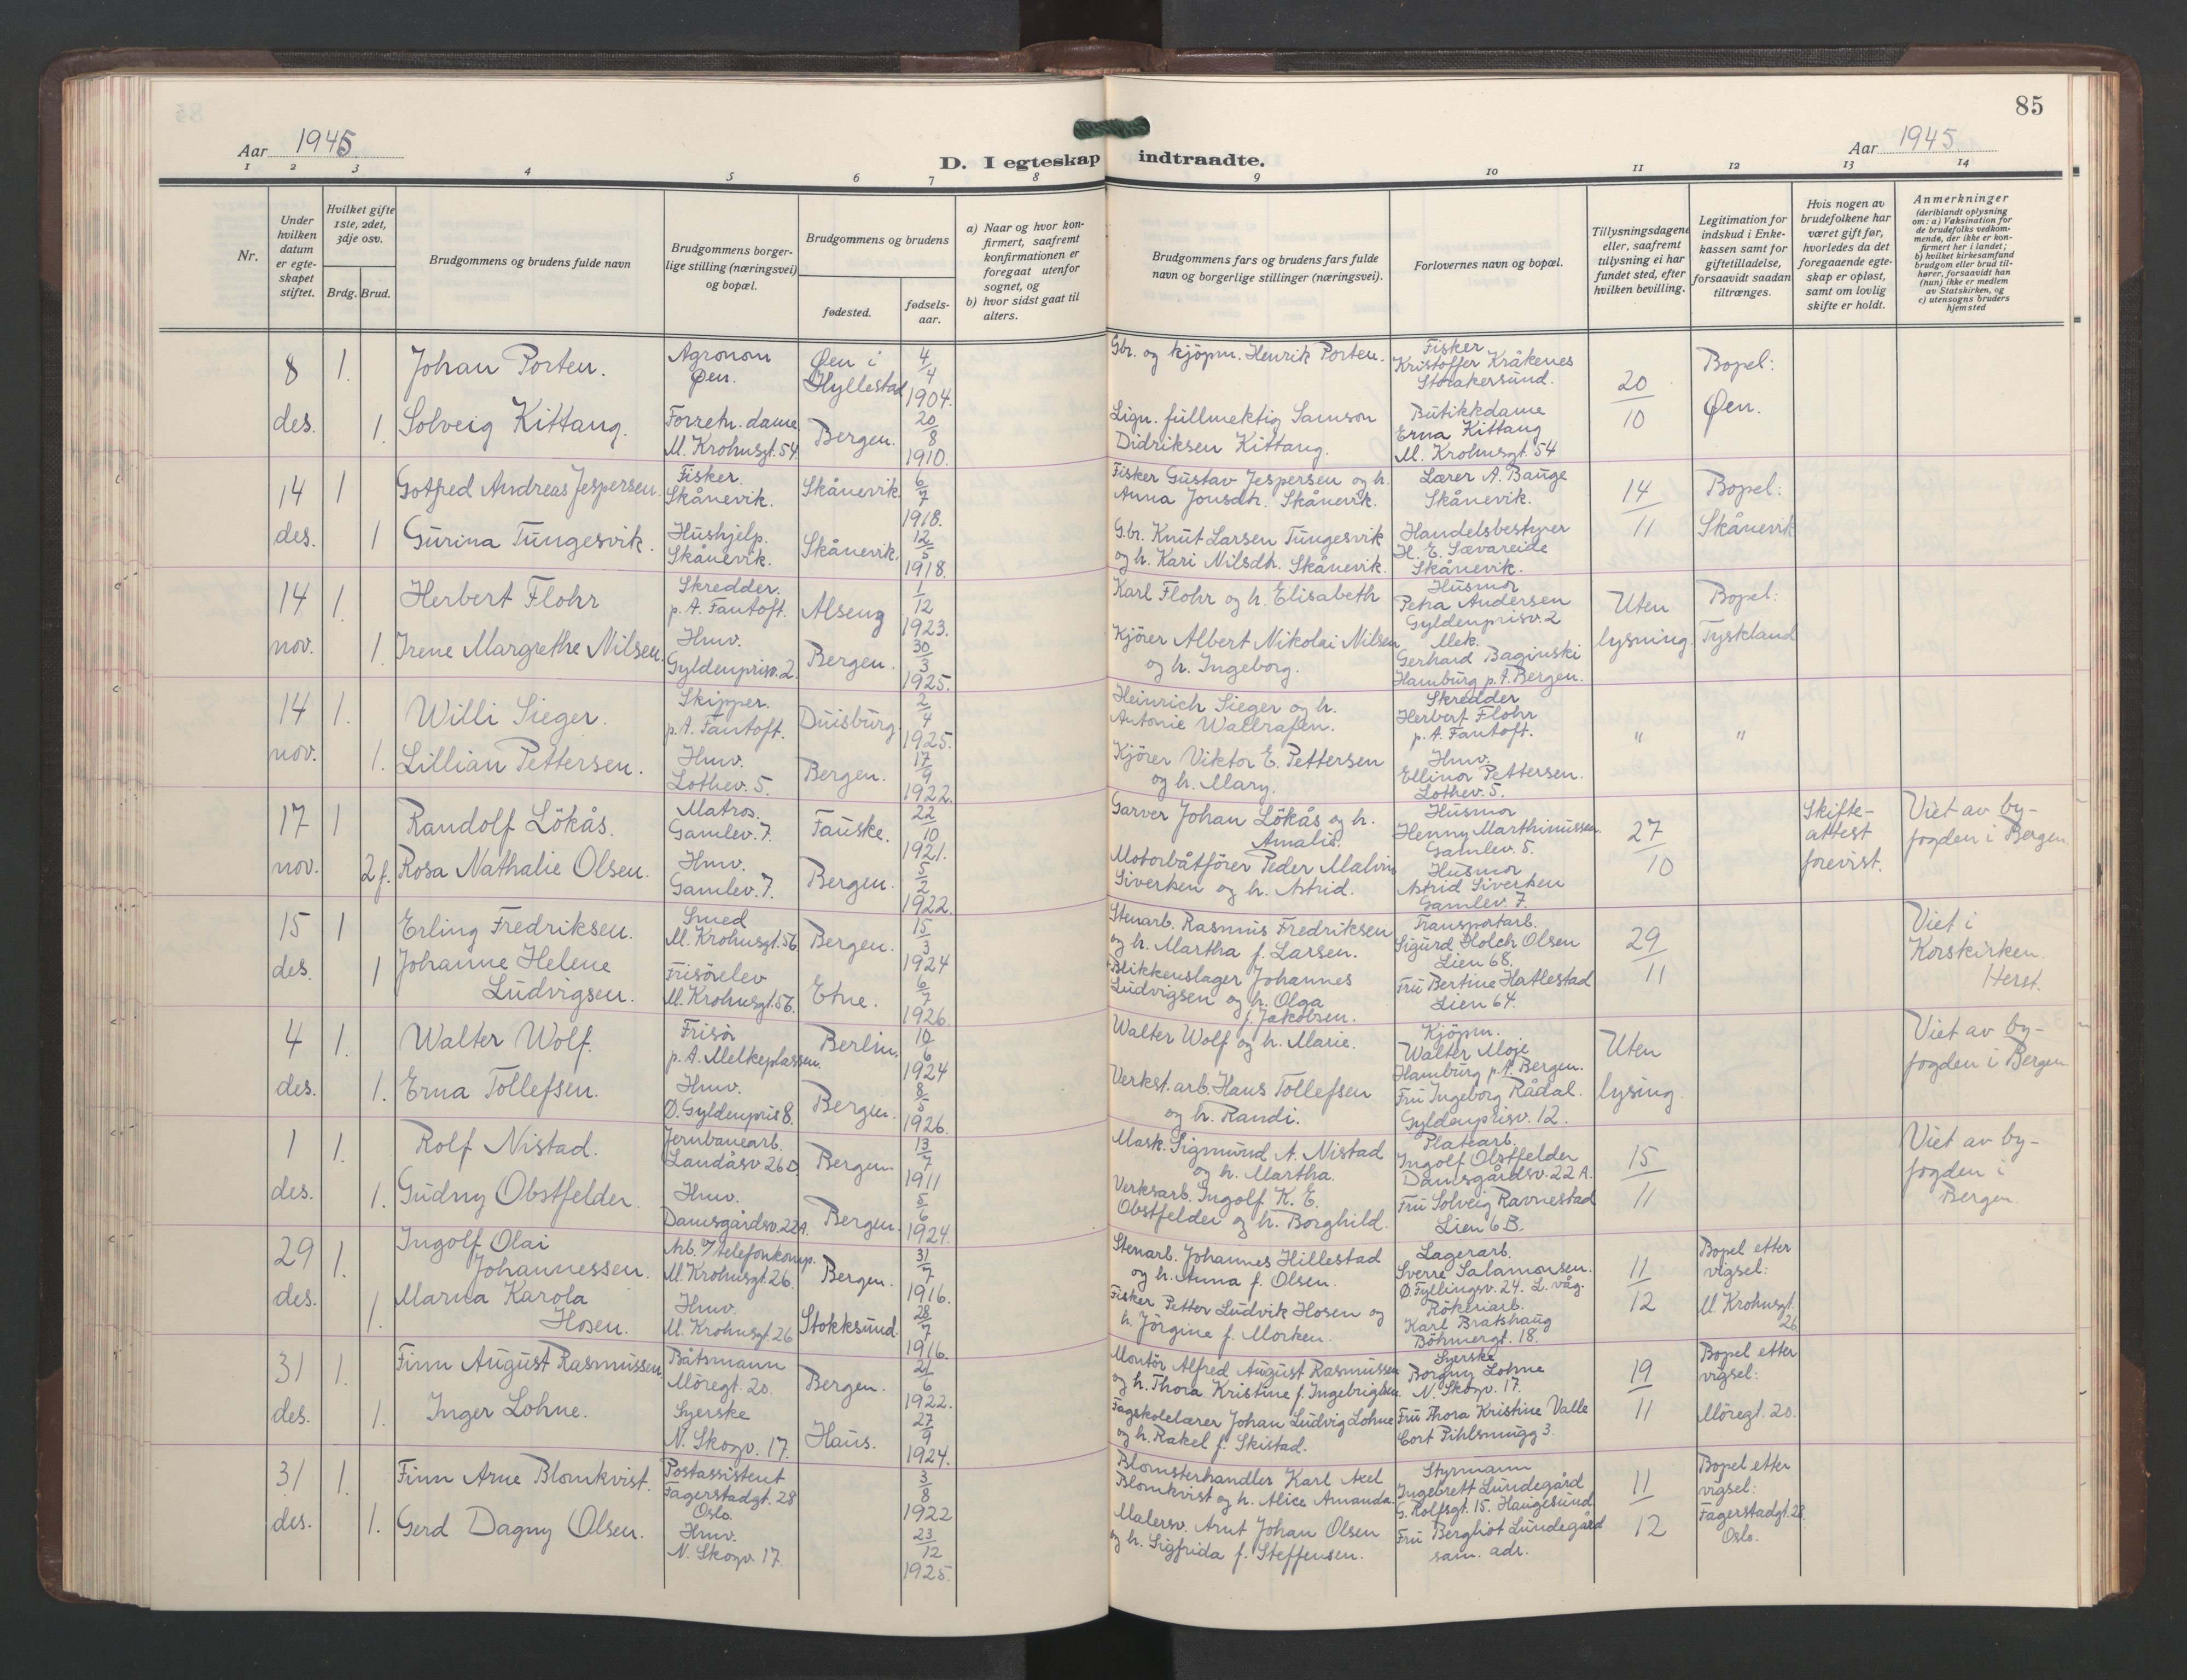 85
Aar 1945
D. I egteskap indtraadte.
Aar 1945.
1 2 3 4 5 6 7 8 9 10 11 12 13 14
Nr.
Under hvilken datum er egteskapet stiftet.
Hvilket gifte 1ste, 2det, 3dje osv.
Brdg. Brud.
Brudgommens og brudens fulde navn
Brudgommens borgerlige stilling (næringsvei) og bopæl.
Brudgommens og brudens
fødested.
fødselsaar.
a) Naar og hvor konfirmert, saafremt konfirmationen er foregaat utenfor sognet, og
b) hvor sidst gaat til alters.
Brudgommens fars og brudens fars fulde navn og borgerlige stillinger (næringsvei).
Forlovernes navn og bopæl.
Tillysningsdagene eller, saafremt tillysning ei har fundet sted, efter hvilken bevilling.
Legitimation for indskud i Enkekassen samt for giftetilladelse, forsaavidt saadan tiltrænges.
Hvis nogen av brudefolkene har været gift før, hvorledes da det foregaaende egteskap er opløst, samt om lovlig skifte er holdt.
Anmerkninger
(deriblandt oplysning om: a) Vaksination for de brudefolks vedkommende, der ikke er konfirmert her i landet; b) hvilket kirkesamfund brudgom eller brud tilhører, forsaavidt han (hun) ikke er medlem av Statskirken, og c) utensogns bruders hjemsted
8 des. 1. Johan Porten. Agronom Øen. Øen i Hyllestad 4/4 1904. Gbr. og kjöpm. Henrik Porten. Fisker Kristoffer Kråkenes Storakersund. 20/10 Bopel: Øen.
1. Solveig Kittang. Forretn. dame M. Krohnsgt. 54. Bergen. 20/8 1910. Lign. fullmektig Samson Didriksen Kittang. Butikkdame Erna Kittang M. Krohnsgt. 54
14 des. 1 Gotfred Andreas Jespersen. Fisker. Skånevik. Skånevik. 6/7 1918. Fisker Gustav Jespersen og h. Anna Jonsdtr. Skånevik. Lærer A. Bauge Skånevik. 14/11 Bopel: Skånevik
1 Gurina Tungesvik. Hushjelp. Skånevik. Skånevik. 12/5 1918. Gbr. Knut Larsen Tungesvik og h. Kari Nilsdtr. Skånevik. Handelsbestyrer H. E. Sævareide Skånevik.
14 nov. 1. Herbert Flohr Skredder. p. A. Fantoft. Alseng 1/12 1923. Karl Flohr og h. Elisabeth Husmor Petra Andersen Gyldenprisv. 2 Uten lysning Bopel: Tyskland
1. Irene Margrethe Nilsen. Hmv. Gyldenprisv. 2. Bergen. 30/3 1925. Kjörer Albert Nikolai Nilsen og h. Ingeborg. Mek. Gerhard Baginski Hamburg p. A. Bergen.
14 nov. 1. Willi Sieger. Skipper. p. A. Fantoft. Duisburg. 2/4 1925. Heinrich Sieger og h. Antonie Wallrafen. Skredder Herbert Flohr p. A. Fantoft. " "
1. Lillian Pettersen. Hmv. Lothev. 5. Bergen. 17/9 1922. Kjörer Viktor E. Pettersen og h. Mary. Hmv. Ellinor Pettersen. Lothev. 5.
17 nov. 1 Randolf Lökås. Matros. Gamlev. 7. Fauske. 22/10 1921. Garver Johan Lökås og h. Amalie. Husmor Henny Marthinussen. Gamlev. 5. 27/10 Skifteattest forevist. Viet av byfogden i Bergen.
2 f. Rosa Nathalie Olsen. Hmv. Gamlev. 7. Bergen. 5/2 1922. Motorbåtförer Peder Malvin Siversen og h. Astrid. Husmor Astrid Siversen Gamlev. 7.
15 des. 1 Erling Fredriksen. Smed M. Krohnsgt. 56 Bergen. 15/3 1924 Stenarb. Rasmus Fredriksen og h. Martha f. Larsen. Transportarb. Sigurd Holch Olsen Lien 68. 29/11 Viet i Korskirken. Herst.
1 Johanne Helene Ludvigsen. Frisörelev M. Krohnsgt. 56. Etne. 6/7 1926 Blikkenslager Johannes Ludvigsen og h. Olga f. Jakobsen. Fru Bertine Hatlestad Lien 64.
4 des. 1. Walter Wolf. Frisör p. A. Melkeplassen. Berlin. 10/6 1924 Walter Wolf og h. Marie. Kjöpm. Walter Moje Hamburg p. A. Bergen. Uten lysing. Viet av byfogden i Bergen
1. Erna Tollefsen. Hmv. Ø. Gyldenpris 8. Bergen. 8/8 1926. Verkst. arb. Hans Tollefsen og h. Randi. Fru Ingeborg Rådal. Gyldenprisv. 12.
1 des. 1. Rolf Nistad. Jernbanearb. Landåsv. 26 D. Bergen. 13/7 1911 Mask. Sigmund A. Nistad og h. Martha. Platearb. Ingolf Obstfelder Damsgårdsv. 22 A. 15/11 Viet av byfogden i Bergen
1. Gudny Obstfelder. Hmv. Damsgårdsv. 22 A. Bergen. 5/6 1924. Verksarb. Ingolf K. E. Obstfelder og h. Borghild. Fru Solveig Ravnestad Lien 6 B.
29 des. 1. Ingolf Olai Johannessen. Arb. v/ telefonkomp. M. Krohnsgt. 26. Bergen. 31/7 1916. Stenarb. Johannes Hillestad og h. Anna f. Olsen. Lagerarb. Sverre Salamonsen. Ø. Fyllingsv. 24. L. våg. 11/12 Bopel etter vigsel: M. Krohnsgt. 26
1. Marna Karola Hosen. Hmv. M. Krohnsgt. 26 Stokksund. 28/7 1916. Fisker Petter Ludvik Hosen og h. Jörgine f. Morken. Rökeriarb. Karl Bratshaug Böhmergt. 18.
31 des. 1. Finn August Rasmussen. Båtsmann Möregt. 20. Bergen. 21/6 1922. Montör Alfred August Rasmussen og h. Thora Kristine f. Ingebrigtsen. Syerske Borgny Lohne N. Skogv. 17. 19/11 Bopel etter vigsel: Möregt. 20.
1. Inger Lohne. Syerske N. Skogv. 17. Haus. 27/9 1924. Fagskolelærer Johan Ludvig Lohne og h. Rakel f. Skistad. Fru Thora Kristine Valle Cort Pihlsmugg 3.
31 des. 1. Finn Arne Blomkvist. Postassistent Fagerstadgt. 28 Oslo. 3/8 1922 Blomsterhandler Karl Axel Blomkvist og h. Alice Amanda. Styrmann Ingebrett Lundegård G. Rolfsgt. 15. Haugesund 11/12 Bopel etter vigsel: Fagerstadgt. 28. Oslo.
1. Gerd Dagny Olsen. Hmv. N. Skogv. 17. 23/12 1925. Malersv. Arnt Johan Olsen og h. Sigfrida f. Steffensen. Fru Bergliot Lundegård sam. adr.